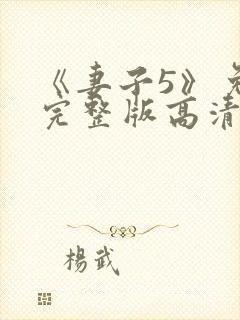 《妻子5》免
完整版高清
楊武